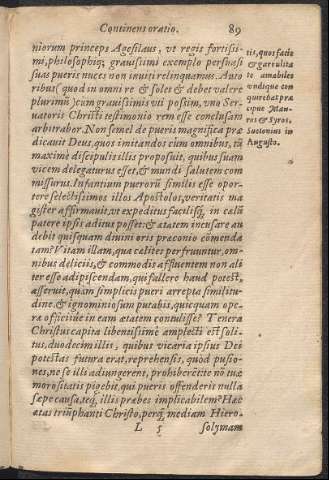 Continens oratio. 89
niorum princeps Agesilaus, vt regis fortissi-
mi, philosophiq́; grauissimi exemplo persuasi
suas pueris nuces non inuiti relinquamus. Auto
ribus (quod in omni re & solet & debet valere
plurimū) cum grauissimis vti possim, vno Ser-
uatoris Christi testimonio rem esse conclusam
arbitrabor. Non semel de pueris magnifica præ
dicauit Deus, quos imitandos cùm omnibus, tū
maximè discipulis illis proposuit, quibus suam
vicem delegaturus esset, & mundi salutem com
missurus. Infantium puerorū similis esse opor-
tere selectissimos illos Apostolos, veritatis ma
gister affirmauit, vt expeditus facilisq́; in cælū
patere ipsis aditus posset: & ætatem incusare au
debit quisquam diuini oris præconio cōmenda
tam? Vitam illam, qua cælites perfruuntur, om-
nibus deliciis, & commodis affluentem non ali
ter esse adipiscendam, qui fallere haud potest,
asseruit, quàm simplicis pueri arrepta similitu-
dine. & ignominiosum putabis, quicquam ope-
ræ officiiue in eam ætatem contulisse? Tenera
Christus capita libentissimè amplecti est soli-
tus, duodecim illis, quibus vicaria ipsius Dei
potestas futura erat, reprehensis, quòd pusio-
nes, ne se illi adiungerent, prohiberēt: te nō tuæ
morositatis pigebit, qui pueris offenderis nulla
sæpe causa, teq́; illis præbes implicabilem? Hæc
ætas triūphanti Christo, perq́; mediam Hiero-
L 5 solymam
tis, quos facie
& garrulita
te amabiles
vndique con
quirebat præ
cipuè Mau-
ros & Syros,
Suetonius in
Augusto.